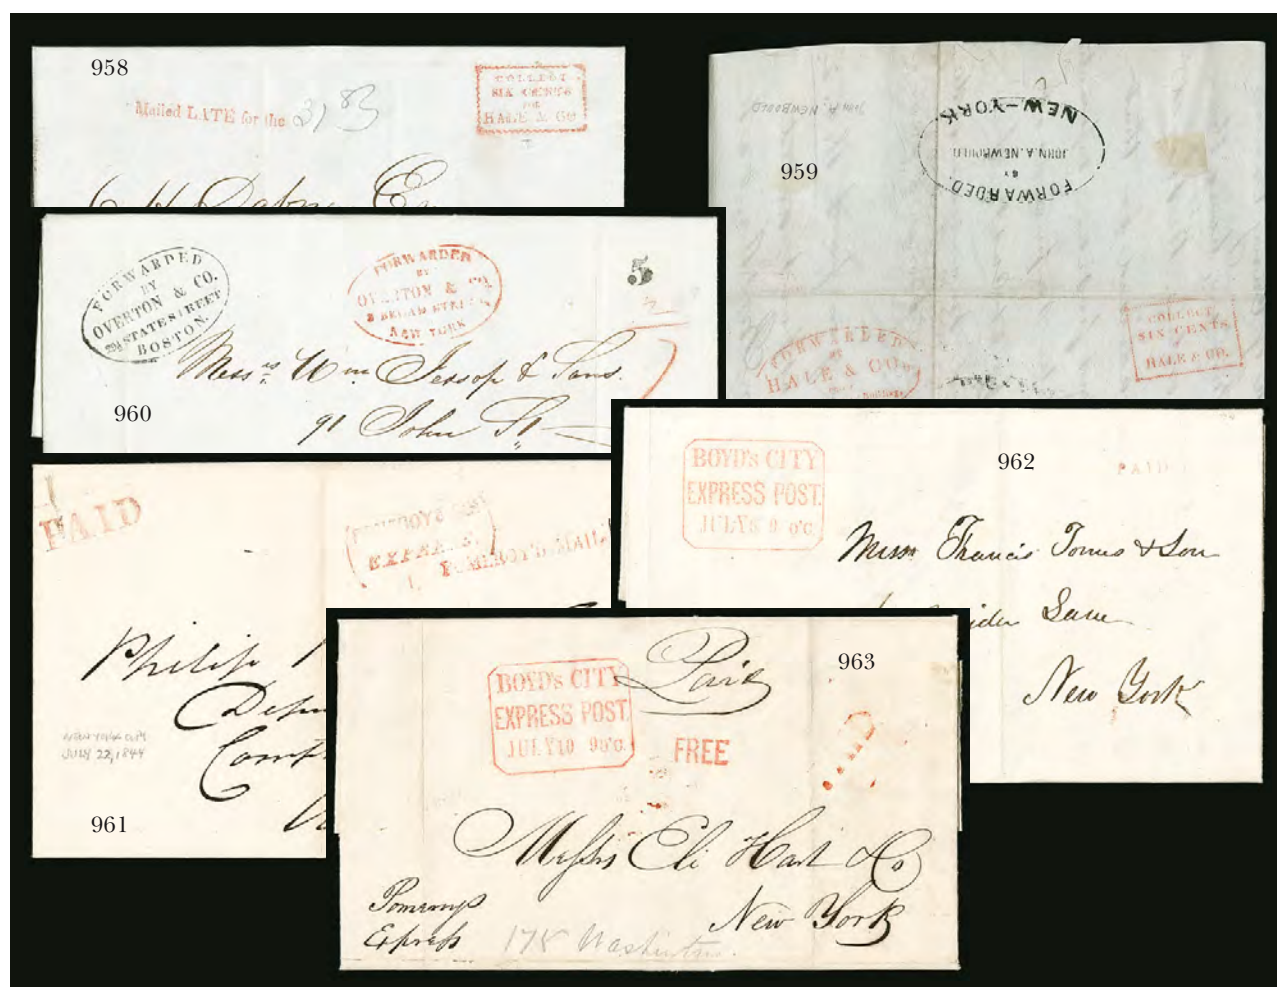 958
Mailed LATE for the
COLLECT
SIX CENTS
FOR
HALE & CO
JOHN A. NEWBOULD
FORWARDED.
BY
JOHN. A. NEWBOULD
NEW-YORK
959
FORWARDED
BY
HALE & CO.
COLLECT
SIX CENTS
HALE & CO.
FORWARDED
BY
OVERTON & CO.
STATE STREET
BOSTON.
FORWARDED
BY
OVERTON & CO
BROAD STREET
NEW YORK
5
Messrs Wm Jessop & Sons.
91 John St
960
PAID
POMEROY'S
EXPRESS.
POMEROY'S MAIL
Philip
NEW YORK CITY
JULY 22, 1844
961
BOYD'S CITY
EXPRESS POST.
JULY 8 9 O'C.
962
PAID
Messrs Francis Tomes & Son
Lane
New York
BOYD'S CITY
EXPRESS POST.
JULY 10 9 O'C.
Paid
963
FREE
Messrs Eli Hart & Co
New York
Pomeroys
Express
178 Washington